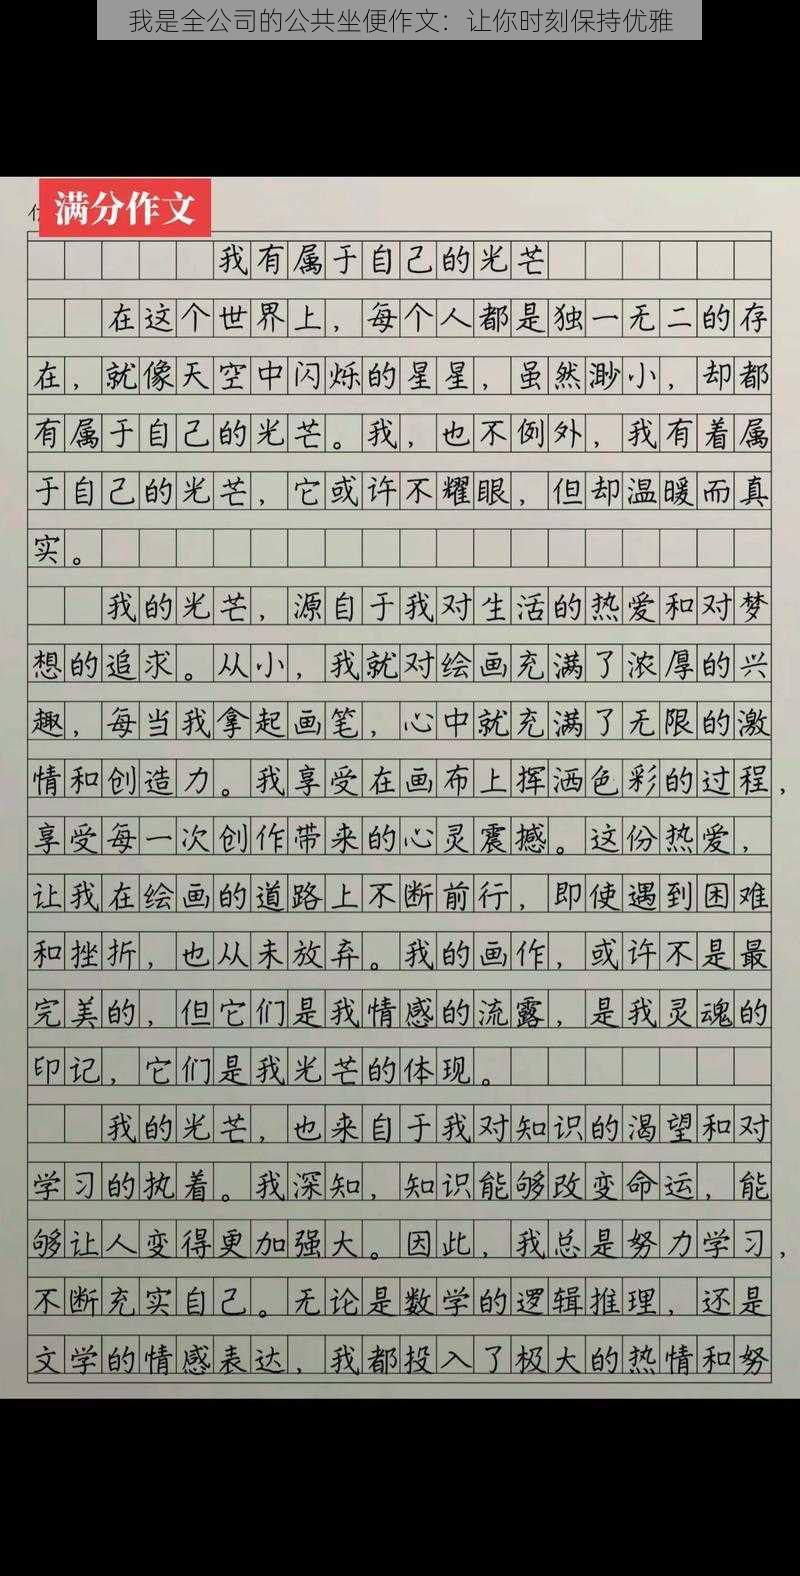 我是全公司的公共坐便作文：让你时刻保持优雅
满分作文
我有属于自己的光芒
在这个世界上，每个人都是独一无二的存
在，就像天空中闪烁的星星，虽然渺小，却都
有属于自己的光芒。我，也不例外，我有着属
于自己的光芒，它或许不耀眼，但却温暖而真
实。
我的光芒，源自于我对生活的热爱和对梦
想的追求。从小，我就对绘画充满了浓厚的兴
趣，每当我拿起画笔，心中就充满了无限的激
情和创造力。我享受在画布上挥洒色彩的过程，
享受每一次创作带来的心灵震撼。这份热爱，
让我在绘画的道路上不断前行，即使遇到困难
和挫折，也从未放弃。我的画作，或许不是最
完美的，但它们是我情感的流露，是我灵魂的
印记，它们是我光芒的体现。
我的光芒，也来自于我对知识的渴望和对
学习的执着。我深知，知识能够改变命运，能
够让人变得更加强大。因此，我总是努力学习，
不断充实自己。无论是数学的逻辑推理，还是
文学的情感表达，我都投入了极大的热情和努